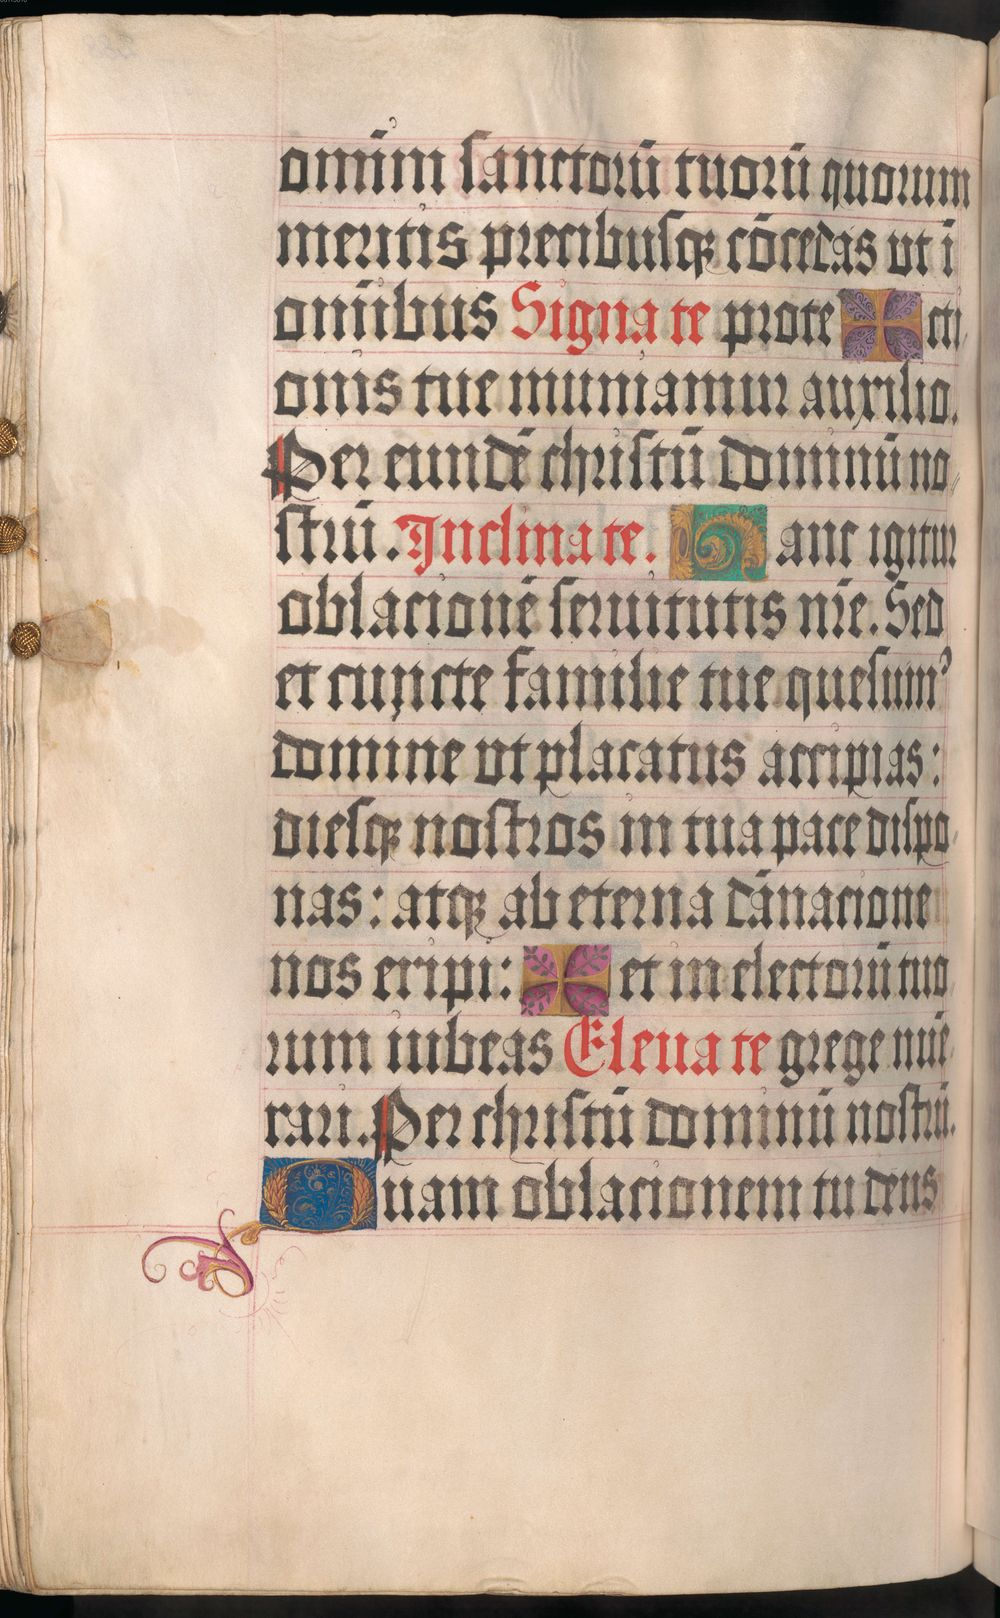 omīm sanctorū tuorū quorum
meritis precibusqꝫ cōcedas ut ī
omībus Signate prote ✠ cti
onis tue muniamur auxilio.
Per eundē christū dominū no
strū. Inclinate. Hanc igitur
oblacionē seruitutis nr̄e. Sed
et cuncte familie tue quesumꝰ
domine ut placatus accipias:
diesqꝫ nostros in tua pace dispo
nas: atqꝫ ab eterna dānacione
nos eripi: ✠ et in electorū tuo
rum iubeas Eleuate grege nūe
rari. Per christū dominū nostrū.
Quam oblacionem tu deus